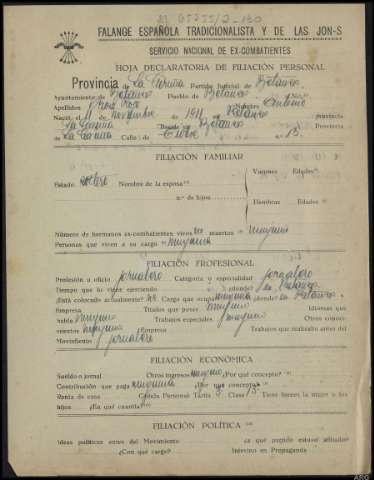 FALANGE ESPAÑOLA TRADICIONALISTA Y DE LAS JON-S
SERVICIO NACIONAL DE EX-COMBATIENTES
HOJA DECLARATORIA DE FILIACIÓN PERSONAL
Provincia de La Coruña Partido Judicial de Betanzos
Ayuntamiento de Betanzos Pueblo de Betanzos
Apellidos Nombre Antonio
Nació el 11 de Noviembre de 1911 en Betanzos Provincia
La Coruña Reside en Betanzos provincia
de La Coruña Calle: de n.º 13
FILIACIÓN FAMILIAR
Varones Edades
Estado soltero Nombre de la esposa
n.º de hijos
Hembras Edades
Número de hermanos ex-combatientes vivos muertos ninguno
Personas que viven a su cargo ninguna
FILIACIÓN PROFESIONAL
Profesión u oficio jornalero Categoría o especialidad jornalero
Tiempo que lo viene ejerciendo ¿dónde? en Betanzos
¿Está colocado actualmente? Cargo que ocupa ninguno ¿dónde? en Betanzos
Empresa Títulos que posee ninguno Idiomas que
habla ninguno Trabajos especiales ninguno Otros conoci-
mientos ninguno Empresa Trabajos que realizaba antes del
Movimiento jornalero
FILIACIÓN ECONÓMICA
Sueldo o jornal Otros ingresos ninguno ¿Por qué concepto?
Contribución que paga ninguna ¿Por qué concepto?
Renta de casa Cédula Personal Tarifa 3 Clase 13 Tiene bienes la mujer o los
hijos ¿En qué cuantía?
FILIACIÓN POLÍTICA
Ideas políticas antes del Movimiento ¿a qué partido estuvo afiliado?
¿Con qué cargo? Intervino en Propaganda